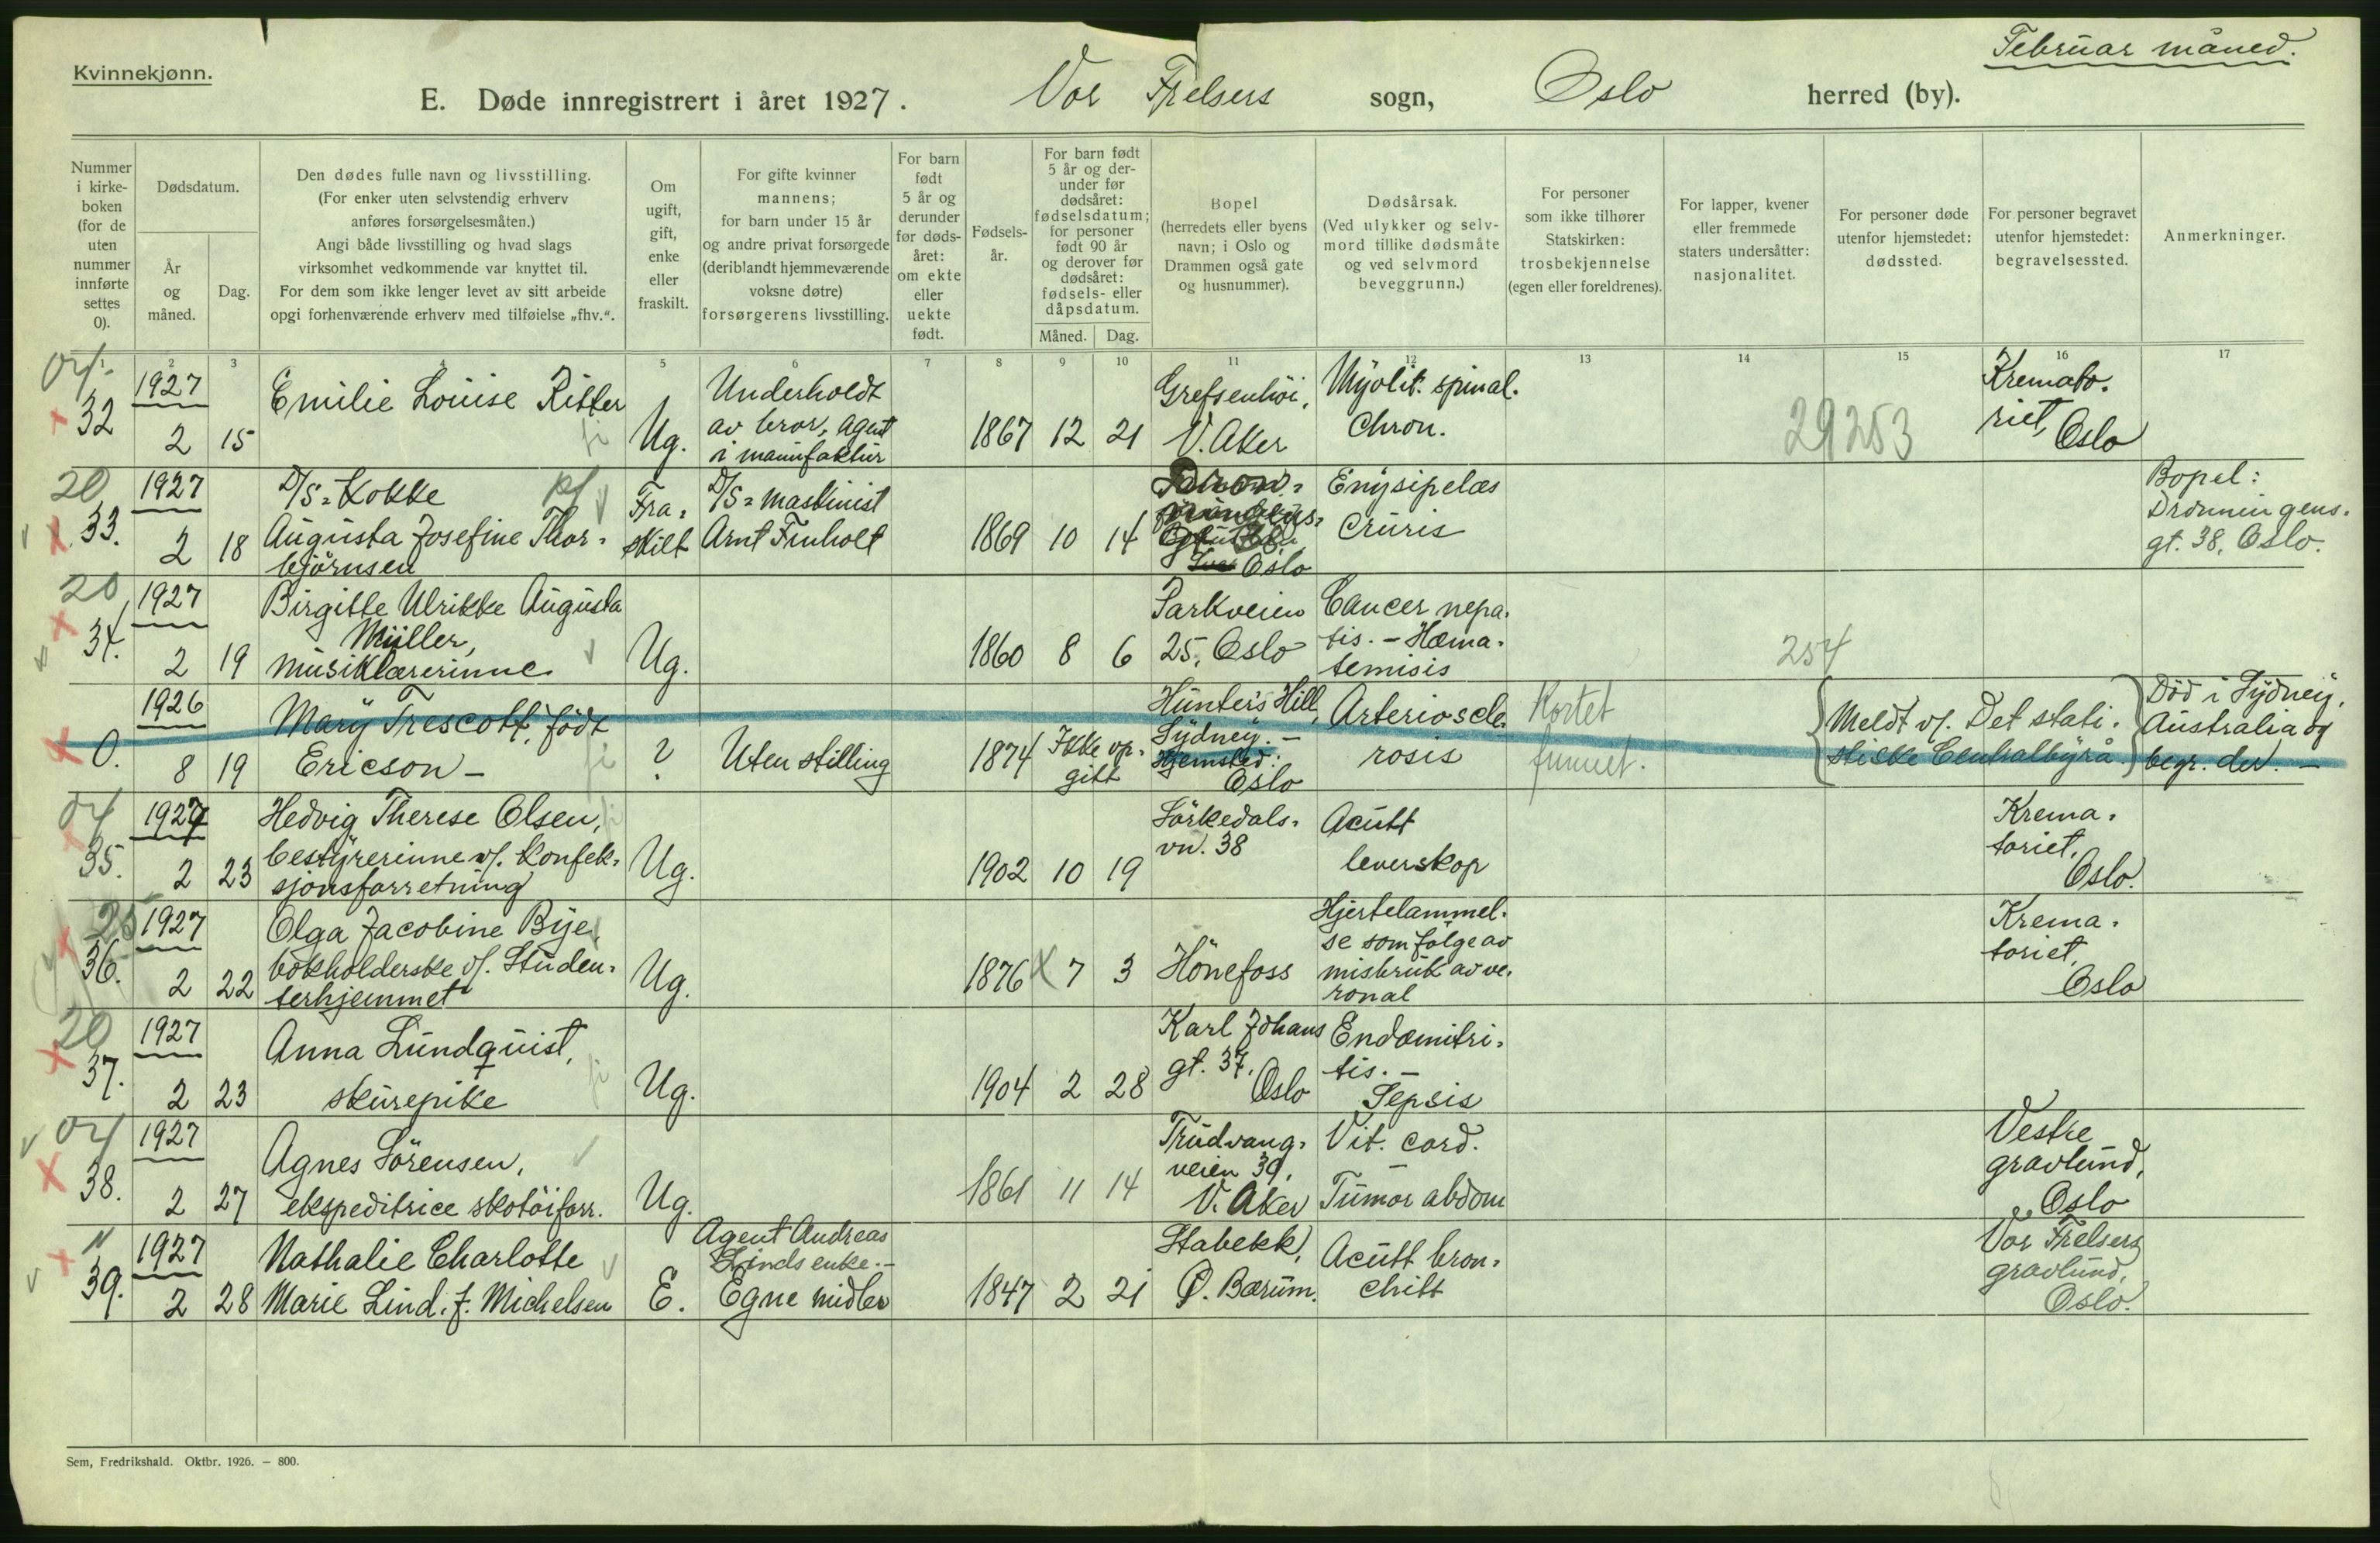 Februar måned.
Kvinnekjønn.
E. Døde innregistrert i året 1927. Vor Frelsers sogn, Oslo herred (by).
Nummer i kirke-boken (for de uten nummer innførte settes 0).
Dødsdatum.
År og måned.
Dag.
Den dødes fulle navn og livsstilling.
(For enker uten selvstendig erhverv
anføres forsørgelsesmåten.)
Angi både livsstilling og hvad slags
virksomhet vedkommende var knyttet til.
For dem som ikke lenger levet av sitt arbeide
opgi forhenværende erhverv med tilføielse „fhv.“.
Om ugift, gift, enke eller fraskilt.
For gifte kvinner
mannens;
for barn under 15 år
og andre privat forsørgede
(deriblandt hjemmeværende
voksne døtre)
forsørgerens livsstilling.
For barn født 5 år og derunder før døds-året: om ekte eller uekte født.
Fødsels-år.
For barn født 5 år og der-under før dødsåret: fødselsdatum; for personer født 90 år og derover før dødsåret: fødsels- eller dåpsdatum.
Måned. Dag.
Bopel
(herredets eller byens
navn; i Oslo og
Drammen også gate
og husnummer).
Dødsårsak.
(Ved ulykker og selv-
mord tillike dødsmåte
og ved selvmord
beveggrunn.)
For personer
som ikke tilhører
Statskirken:
trosbekjennelse
(egen eller foreldrenes).
For lapper, kvener
eller fremmede
staters undersåtter:
nasjonalitet.
For personer døde
utenfor hjemstedet:
dødssted.
For personer begravet
utenfor hjemstedet:
begravelsessted.
Anmerkninger.
1 2 3 4 5 6 7 8 9 10 11 12 13 14 15 16 17
32
1927
2 15
Emilie Louise Ritter
Ug.
Underholdt
av bror, agent
i manufaktur
1867 12 21
Grefsenhöi,
V. Aker
Myolit. spinal.
Chron.
29253
Kremato-
riet, Oslo
20
33.
1927
2 18
D/S=Kokke
Augusta Josefine Thor-
björnsen
Fra-
skilt
D/S=maskinist
Arnt Finholt
1869 10 14
Oslo
Erysipelas
Cruris
Bopel:
Dronningens-
gt. 38, Oslo.
20
34.
1927
2 19
Birgitte Ulrikke Augusta
Müller,
musiklærerinne
Ug.
1860 8 6
Parkveien
25, Oslo
Cancer hepa-
tis. - Hæma-
temisis
254
0.
1926
8 19
Mary Trescott, født
Ericson -
?
Uten stilling
1874
Ikke op-
gitt
Hunter's Hill,
Sydney. -
Hjemsted:
Oslo
Arterioscle-
rosis
Kortet
funnet.
Meldt v/. Det stati-
stiske Centralbyrå.
Död i Sydney,
Australia og
begr. der. -
04
35.
1927
2 23
Hedvig Therese Olsen,
bestyrerinne v/. Konfek-
sjonsforretning
Ug.
1902 10 19
Sörkedals-
vn. 38
Acutt
leverskop
Krema-
toriet,
Oslo.
25
36.
1927
2 22
Olga Jacobine Bye,
bokholderske v/. Studen-
terhjemmet
Ug.
1876 7 3
Hönefoss
Hjertelammel-
se som fölge av
misbruk av ve-
ronal
Krema-
toriet,
Oslo
20
37.
1927
2 23
Anna Lundquist,
skurepike
Ug.
1904 2 28
Karl Johans
gt. 37,
Oslo
Endomitri-
tis. -
Sepsis
04
38.
1927
2 27
Agnes Sörensen,
ekspeditrice skotöiforr.
Ug.
1861 11 14
Trudvang-
veien 39,
V. Aker
Vit. cord.
Tumor abdom
Vestre
gravlund,
Oslo
39.
1927
2 28
Nathalie Charlotte
Marie Lind. f. Michelsen
E.
Agent Andreas
Linds enke. -
Egne midler
1847 2 21
Stabekk,
Ö. Bærum.
Acutt bron-
chitt
Vor Frelsers
gravlund,
Oslo.
Sem, Fredrikshald. Oktbr. 1926. — 800.